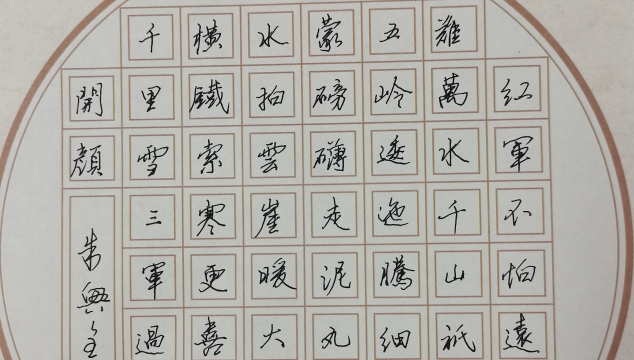 紅軍不怕遠
難萬水千山祇
五岭逶迤騰細
蒙磅礴走泥丸
水拍雲崖暖大
橫鐵索寒更喜
千里雪三軍過
開顏
朱興